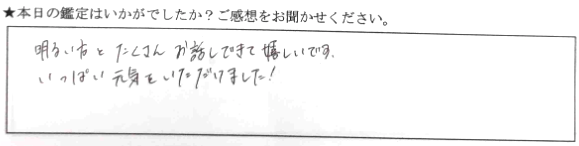 ★本日の鑑定はいかがでしたか？ご感想をお聞かせください。
明るい方とたくさんお話しできて嬉しいです。
いっぱい元気をいただけました！